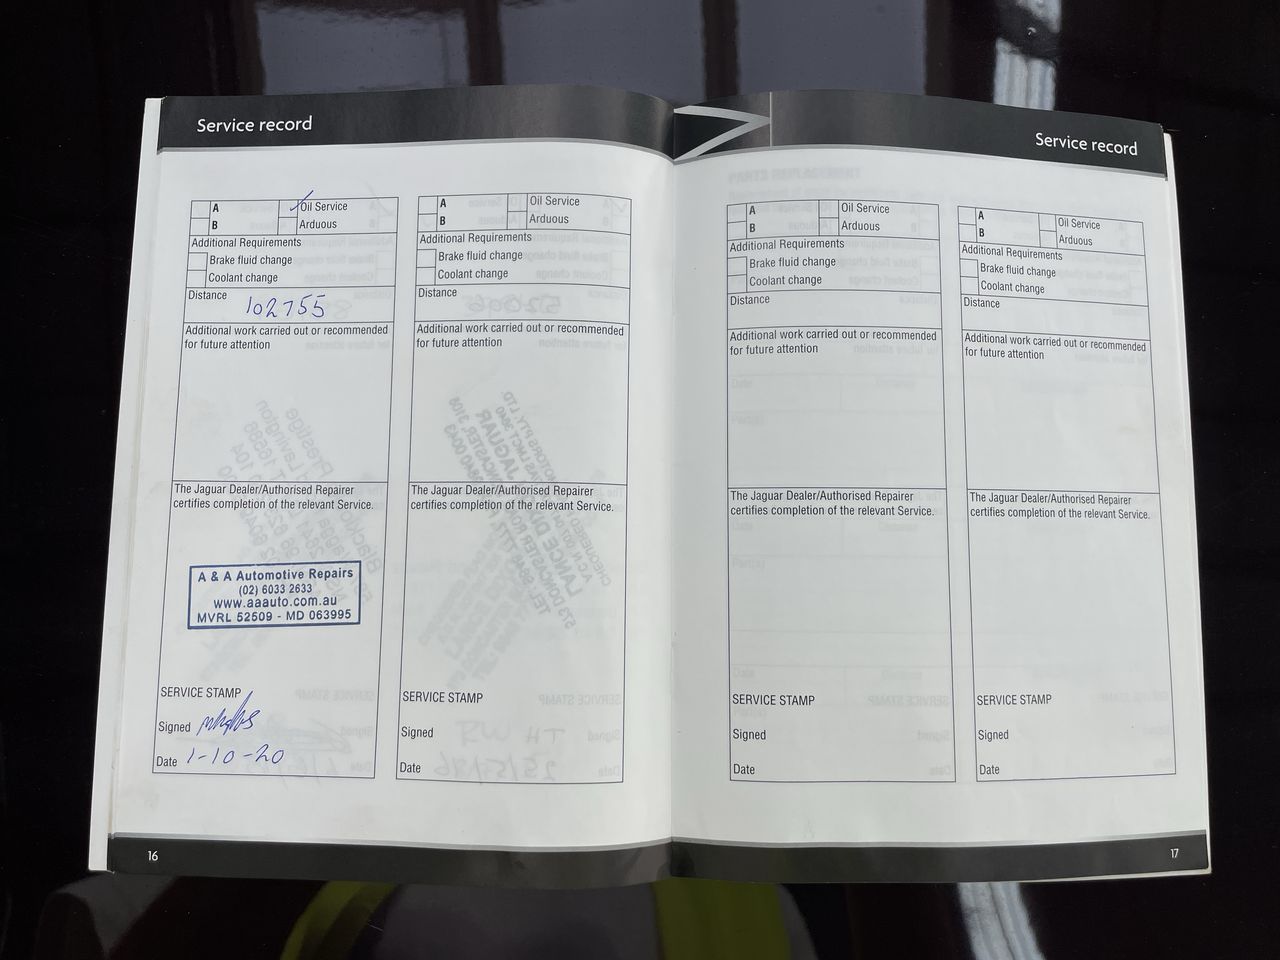 Service record
A
Oil Service
B
Arduous
Additional Requirements
Brake fluid change
Coolant change
Distance
102755
Additional work carried out or recommended
for future attention
The Jaguar Dealer/Authorised Repairer
certifies completion of the relevant Service.
A & A Automotive Repairs
(02) 6033 2633
www.aaauto.com.au
MVRL 52509 - MD 063995
SERVICE STAMP
Signed
Date 1-10-20
A
Oil Service
B
Arduous
Additional Requirements
Brake fluid change
Coolant change
Distance
Additional work carried out or recommended
for future attention
The Jaguar Dealer/Authorised Repairer
certifies completion of the relevant Service.
SERVICE STAMP
Signed
Date
16
Service record
A
Oil Service
B
Arduous
Additional Requirements
Brake fluid change
Coolant change
Distance
Additional work carried out or recommended
for future attention
The Jaguar Dealer/Authorised Repairer
certifies completion of the relevant Service.
SERVICE STAMP
Signed
Date
A
Oil Service
B
Arduous
Additional Requirements
Brake fluid change
Coolant change
Distance
Additional work carried out or recommended
for future attention
The Jaguar Dealer/Authorised Repairer
certifies completion of the relevant Service.
SERVICE STAMP
Signed
Date
17